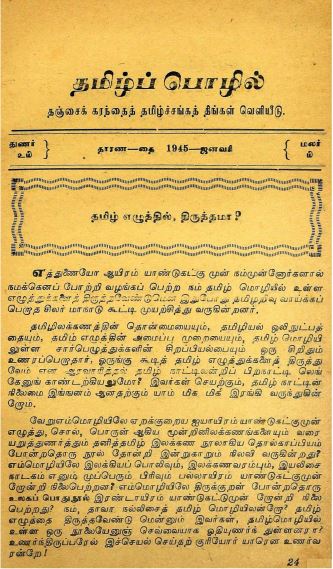 தமிழ்ப் பொழில்
தஞ்சைக் கரந்தைத் தமிழ்ச்சங்கத் திங்கள் வெளியீடு.
துணர் உம் தாரண—தை 1945—ஜனவரி மலர் ம்
தமிழ் எழுத்தில், திருத்தமா?
எத்துணையோ ஆயிரம் யாண்டுகட்கு முன் நம்முன்னோர்களால்
நமக்கெனப் போற்றி வழங்கப் பெற்ற நம் தமிழ் மொழியில் உள்ள
எழுத்துக்களைத் திருத்தவேண்டுமென இதுபோது தமிழறிவு வாய்க்கப்
பெறாத சிலர் மாநாடு கூட்டி முயற்சித்து வருகின்றனர்.
தமிழிலக்கணத்தின் தொன்மையையும், தமிழியல் ஒலிநுட்பத்
தையும், தமிழ் எழுத்தின் அமைப்பு முறையையும், தமிழ் மொழியி
லுள்ள சார்பெழுத்துக்களின் சிறப்பியல்பையும் ஒரு சிறிதும்
உணரப்பெறாதார், ஒருங்கு கூடித் தமிழ் எழுத்துக்களைத் திருத்து
வேம் என ஆரவாரித்தல் தமிழ் காட்டிலன்றிப் பிறநாட்டி லெங்
கேனுங் காண்டற்கியலுமோ? இவர்கள் செயற்கும், தமிழ் நாட்டின்
நிலைமை இங்ஙனம் ஆனதற்கும் யாம் மிக மிக இரங்கி வருந்துகின்
றோம்.
வேறுஎம்மொழியிலே ஏறக்குறைய ஐயாயிரம் யாண்டுகட்குமுன்
எழுத்து, சொல், பொருள் ஆகிய மூன்றினிலக்கணங்களையும் வரை
யறுத்துணர்த்தும் தனித்தமிழ் இலக்கண நூலாகிய தொல்காப்பியம்
போன்றதொரு நூல் தோன்றி இன்றுகாறும் நிலவி வருகின்றது?
எம்மொழியிலே இலக்கியப் பொலிவும், இலக்கணவரம்பும், இயலிசை
நாடகம் எனும் முப்பெரும் பிரிவும் பல்லாயிரம் யாண்டுகட்குமுன்
றோன்றி நிலைபெற்றன? எம்மொழியிலே திருக்குறள் போன்றதொரு
உலகப் பொதுநூல் இரண்டாயிரம் யாண்டுகட்குமுன் றோன்றி நிலை
பெற்றது? நம், தாவர நல்லிசைத் தமிழ் மொழியிலன்றோ? தமிழ்
எழுத்தை திருத்தவேண்டு மென்னும் இவர்கள், தமிழ்மொழியில்
உள்ள ஒரு நூலையேனுஞ் செவ்வையாக ஓதியுணர்ந் துள்ளனரா?
உணர்ந்திருப்பரேல் இச்செயல் செய்தற் குரியோர் யாரென உணர்வ
ரன்றே!
24